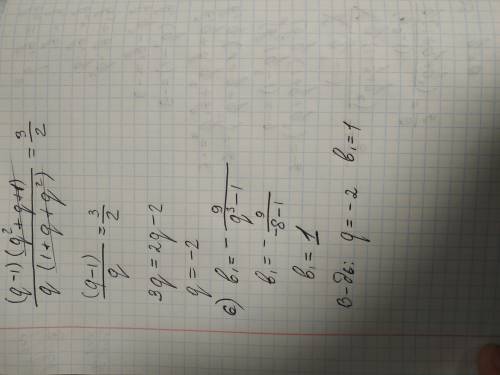 (q-1)(q²+q+1) / q(1+q+q²) = 3/2
(q-1)/q = 3/2
3q = 2q-2
q = -2
б) b₁ = - 9/(q³-1)
b₁ = - 9/(-8-1)
b₁ = 1
В-дь: q = -2 b₁ = 1